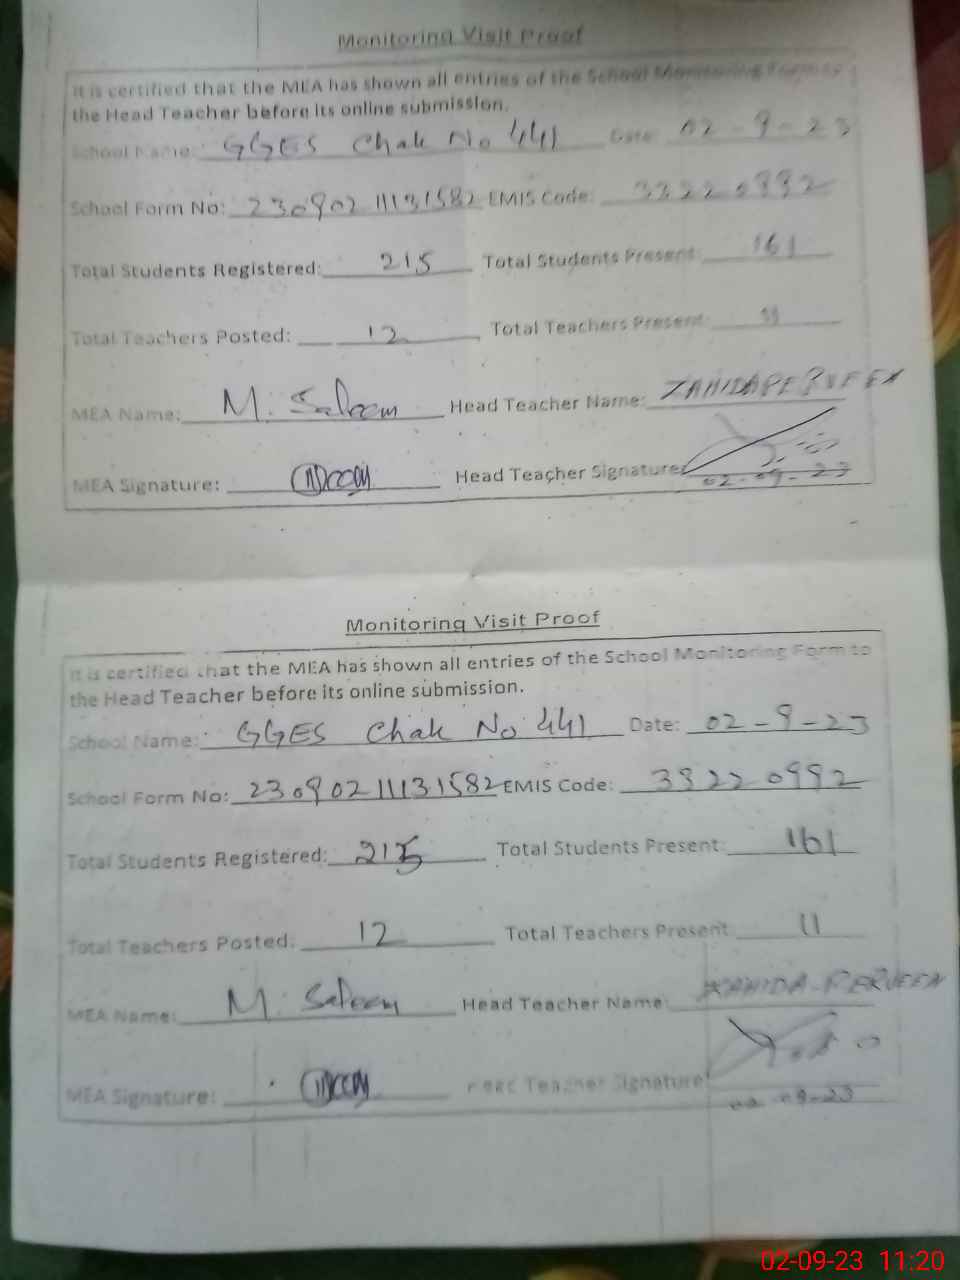 Monitoring Visit Proof
It is certified that the MEA has shown all entries of the School Monitoring Form to
the Head Teacher before its online submission.
School Name: GGES Chak No 441 Date: 02-9-23
School Form No: 23090211131582 EMIS Code: 33220992
Total Students Registered: 215 Total Students Present: 161
Total Teachers Posted: 12 Total Teachers Present: 11
MEA Name: M. Saleem Head Teacher Name: ZAHIDA PERVEEN
MEA Signature: Head Teacher Signature
02-09-23
Monitoring Visit Proof
It is certified that the MEA has shown all entries of the School Monitoring Form to
the Head Teacher before its online submission.
School Name: GGES Chak No 441 Date: 02-9-23
School Form No: 23090211131582 EMIS Code: 33220992
Total Students Registered: 215 Total Students Present: 161
Total Teachers Posted: 12 Total Teachers Present 11
MEA Name: M. Saleem Head Teacher Name: ZAHIDA PERVEEN
MEA Signature: Head Teacher Signature
02-09-23
02-09-23 11:20